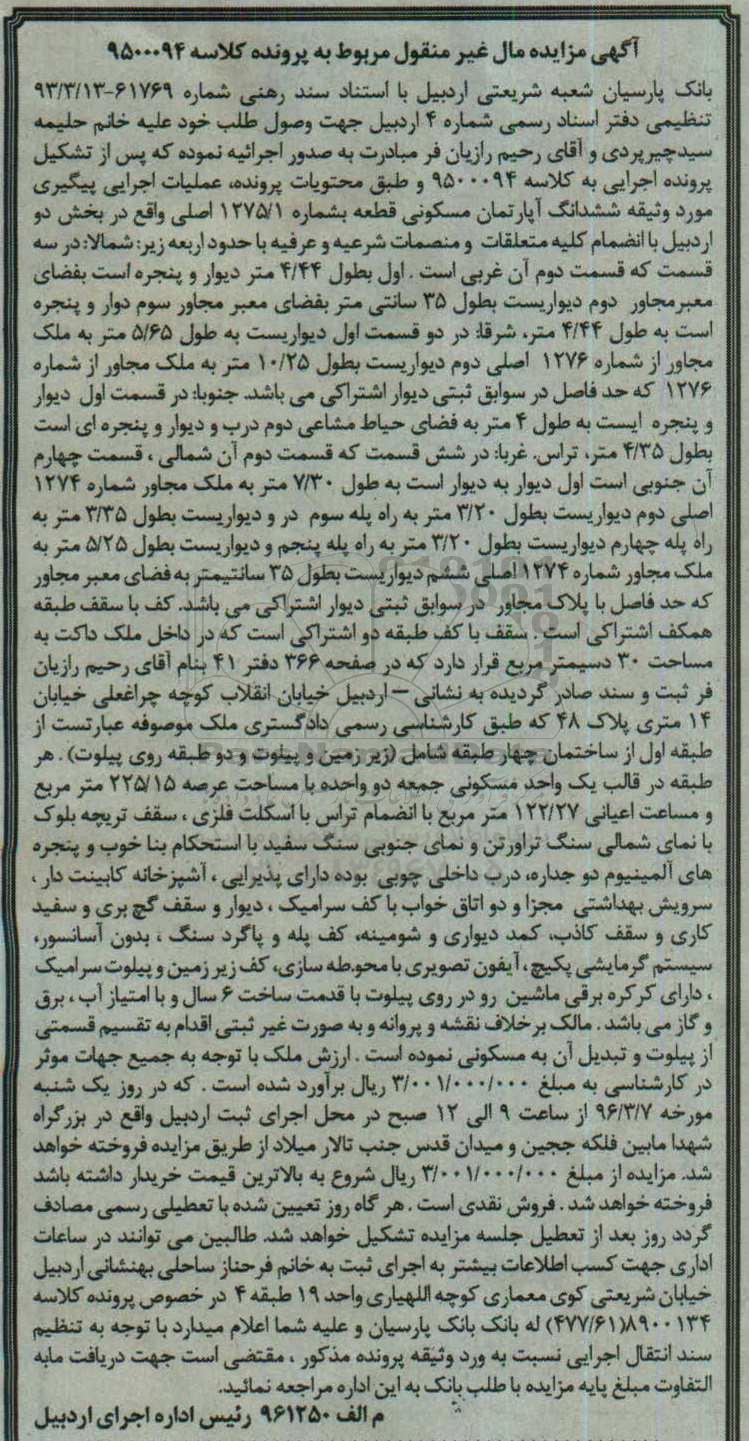 آگهی مزایده مال غیر منقول مربوط به پرونده کلاسه ۹۵۰۰۰۹۴
بانک پارسیان شعبه شریعتی اردبیل با استناد سند رهنی شماره ۶۱۷۶۹-۹۳/۳/۱۳
تنظیمی دفتر اسناد رسمی شماره ۴ اردبیل جهت وصول طلب خود علیه خانم حلیمه
سیدچیرپردی و آقای رحیم رازیان فر مبادرت به صدور اجرائیه نموده که پس از تشکیل
پرونده اجرایی به کلاسه ۹۵۰۰۰۹۴ و طبق محتویات پرونده، عملیات اجرایی پیگیری
مورد وثیقه ششدانگ آپارتمان مسکونی قطعه بشماره ۱۲۷۵/۱ اصلی واقع در بخش دو
اردبیل با انضمام کلیه متعلقات و منصمات شرعیه و عرفیه با حدود اربعه زیر: شمالا: در سه
قسمت که قسمت دوم آن غربی است . اول بطول ۴/۴۴ متر دیوار و پنجره است بفضای
معبرمجاور دوم دیواریست بطول ۳۵ سانتی متر بفضای معبر مجاور سوم دوار و پنجره
است به طول ۴/۴۴ متر، شرقا: در دو قسمت اول دیواریست به طول ۵/۶۵ متر به ملک
مجاور از شماره ۱۲۷۶ اصلی دوم دیواریست بطول ۱۰/۲۵ متر به ملک مجاور از شماره
۱۲۷۶ که حد فاصل در سوابق ثبتی دیوار اشتراکی می باشد. جنوبا: در قسمت اول دیوار
و پنجره ایست به طول ۴ متر به فضای حیاط مشاعی دوم درب و دیوار و پنجره ای است
بطول ۴/۳۵ متر، تراس. غربا: در شش قسمت که قسمت دوم آن شمالی ، قسمت چهارم
آن جنوبی است اول دیوار به دیوار است به طول ۷/۳۰ متر به ملک مجاور شماره ۱۲۷۴
اصلی دوم دیواریست بطول ۳/۲۰ متر به راه پله سوم در و دیواریست بطول ۳/۳۵ متر به
راه پله چهارم دیواریست بطول ۳/۲۰ متر به راه پله پنجم و دیواریست بطول ۵/۲۵ متر به
ملک مجاور شماره ۱۲۷۴ اصلی ششم دیواریست بطول ۳۵ سانتیمتر به فضای معبر مجاور
که حد فاصل با پلاک مجاور در سوابق ثبتی دیوار اشتراکی می باشد. کف با سقف طبقه
همکف اشتراکی است . سقف با کف طبقه دو اشتراکی است که در داخل ملک داکت به
مساحت ۳۰ دسیمتر مربع قرار دارد که در صفحه ۳۶۶ دفتر ۴۱ بنام آقای رحیم رازیان
فر ثبت و سند صادر گردیده به نشانی – اردبیل خیابان انقلاب کوچه چراغعلی خیابان
۱۴ متری پلاک ۴۸ که طبق کارشناسی رسمی دادگستری ملک موصوفه عبارتست از
طبقه اول از ساختمان چهار طبقه شامل (زیر زمین و پیلوت و دو طبقه روی پیلوت) . هر
طبقه در قالب یک واحد مسکونی جمعه دو واحده با مساحت عرصه ۲۲۵/۱۵ متر مربع
و مساعت اعیانی ۱۲۲/۲۷ متر مربع با انضمام تراس با اسکلت فلزی ، سقف تریچه بلوک
با نمای شمالی سنگ تراورتن و نمای جنوبی سنگ سفید با استحکام بنا خوب و پنجره
های آلمینیوم دو جداره، درب داخلی چوبی بوده دارای پذیرایی ، آشپزخانه کابینت دار ،
سرویش بهداشتی مجزا و دو اتاق خواب با کف سرامیک ، دیوار و سقف گچ بری و سفید
کاری و سقف کاذب، کمد دیواری و شومینه، کف پله و پاگرد سنگ ، بدون آسانسور،
سیستم گرمایشی پکیج، آیفون تصویری با محوطه سازی، کف زیر زمین و پیلوت سرامیک
، دارای کرکره برقی ماشین رو در روی پیلوت با قدمت ساخت ۶ سال و با امتیاز آب ، برق
و گاز می باشد . مالک برخلاف نقشه و پروانه و به صورت غیر ثبتی اقدام به تقسیم قسمتی
از پیلوت و تبدیل آن به مسکونی نموده است . ارزش ملک با توجه به جمیع جهات موثر
در کارشناسی به مبلغ ۳/۰۰۱/۰۰۰/۰۰۰ ریال برآورد شده است . که در روز یک شنبه
مورخه ۹۶/۳/۷ از ساعت ۹ الی ۱۲ صبح در محل اجرای ثبت اردبیل واقع در بزرگراه
شهدا مابین فلکه ججین و میدان قدس جنب تالار میلاد از طریق مزایده فروخته خواهد
شد. مزایده از مبلغ ۳/۰۰۱/۰۰۰/۰۰۰ ریال شروع به بالاترین قیمت خریدار داشته باشد
فروخته خواهد شد . فروش نقدی است . هر گاه روز تعیین شده با تعطیلی رسمی مصادف
گردد روز بعد از تعطیل جلسه مزایده تشکیل خواهد شد. طالبین می توانند در ساعات
اداری جهت کسب اطلاعات بیشتر به اجرای ثبت به خانم فرحناز ساحلی بهنشانی اردبیل
خیابان شریعتی کوی معماری کوچه اللهیاری واحد ۱۹ طبقه ۴ در خصوص پرونده کلاسه
۸۹۰۰۱۳۴(۴۷۷/۶۱) له بانک بانک پارسیان و علیه شما اعلام میدارد با توجه به تنظیم
سند انتقال اجرایی نسبت به ورد وثیقه پرونده مذکور ، مقتضی است جهت دریافت مابه
التفاوت مبلغ پایه مزایده با طلب بانک به این اداره مراجعه نمائید.
م الف ۹۶۱۲۵۰ رئیس اداره اجرای اردبیل